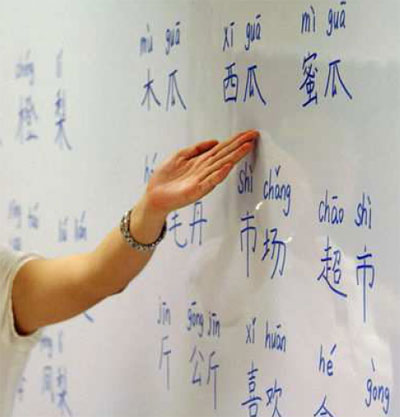 mù guā xī guā mì guā
橙 梨 木瓜 西瓜 蜜瓜
shì chǎng chāo shì
毛丹 市场 超市
jīn gōng jīn xǐ huān hé gòng
梨 斤 公斤 喜欢